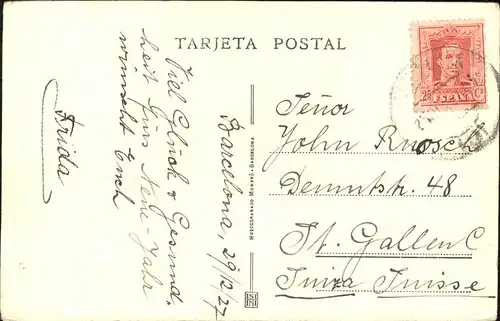 TARJETA POSTAL
Viel Glück & Gesund-
heit zum Neue-Jahr
wünscht Euch
Frida
Barcelona, 29/12 27
HUECOGRABADO MUMBRÚ-BARCELONA
25 Cs
ESPAÑA
Señor
John Rusch
Demutstr. 48
St. Gallen C
Suiza Suisse